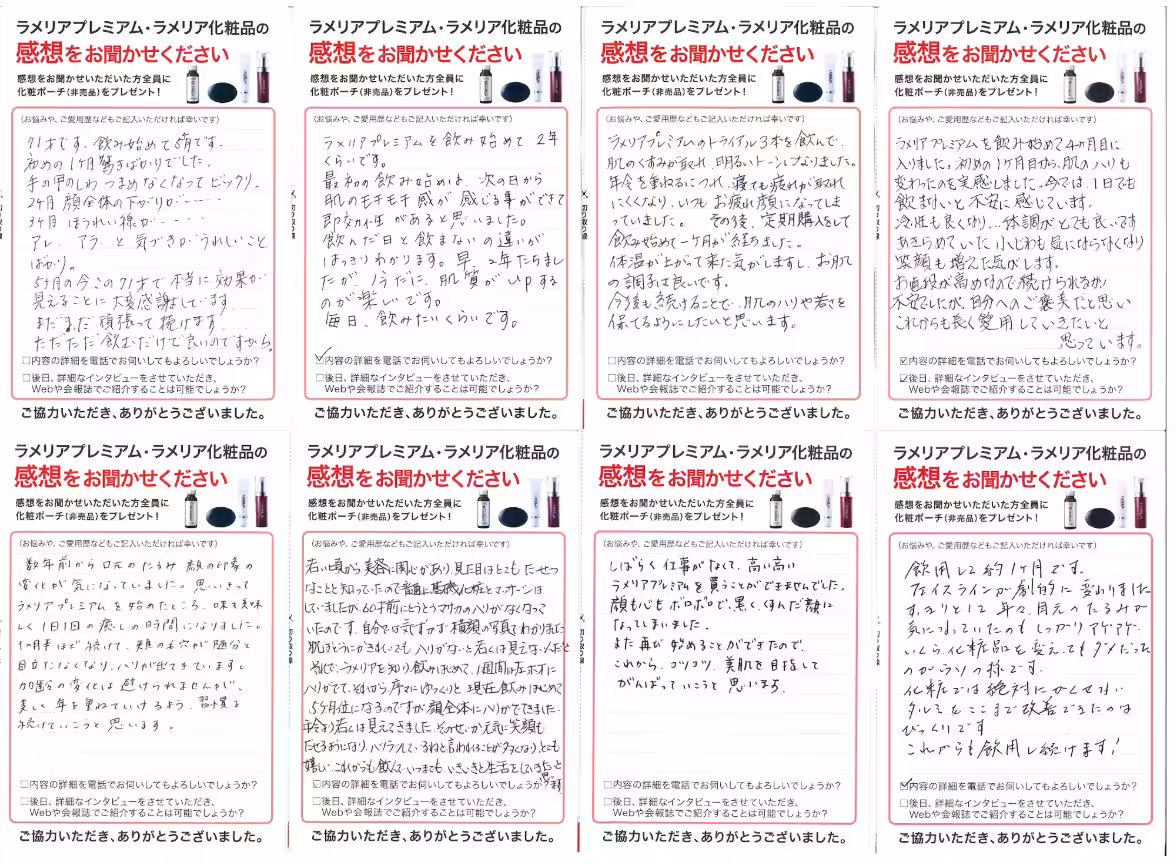 ラメリアプレミアム・ラメリア化粧品の
感想をお聞かせください
感想をお聞かせいただいた方全員に
化粧ポーチ(非売品)をプレゼント!
(お悩みや、ご愛用歴などもご記入いただければ幸いです)
71才です。飲み始めて5ヶ月です。
初めの1ヶ月驚きばかりでした。
手の甲のしわつまめなくなってビックリ。
2ヶ月 顔全体の下がりが‥‥
3ヶ月 ほうれい線が‥‥
アレ、アラ、と気がきがうれしいこと
ばかり。
5ヶ月の今この71才で本当に効果が
見えることに大変感謝しています
まだまだ頑張って続けます
ただただ飲むだけで良いのですから。
□内容の詳細を電話でお伺いしてもよろしいでしょうか?
□後日、詳細なインタビューをさせていただき、
Webや会報誌でご紹介することは可能でしょうか?
ご協力いただき、ありがとうございました。
ラメリアプレミアム・ラメリア化粧品の
感想をお聞かせください
感想をお聞かせいただいた方全員に
化粧ポーチ(非売品)をプレゼント!
(お悩みや、ご愛用歴などもご記入いただければ幸いです)
ラメリアプレミアムを飲み始めて2年
くらいです。
最初の飲み始めは、次の日から
肌のモチモチ感が感じる事ができて
即効性があると思いました。
飲んだ日と飲まないの違いが
はっきりわかります。早、2年たちまし
たが、今だに、肌質がupする
のが楽しいです。
毎日、飲みたいくらいです。
☑内容の詳細を電話でお伺いしてもよろしいでしょうか?
□後日、詳細なインタビューをさせていただき、
Webや会報誌でご紹介することは可能でしょうか?
ご協力いただき、ありがとうございました。
ラメリアプレミアム・ラメリア化粧品の
感想をお聞かせください
感想をお聞かせいただいた方全員に
化粧ポーチ(非売品)をプレゼント!
(お悩みや、ご愛用歴などもご記入いただければ幸いです)
ラメリアプレミアムのトライアル3本を飲んで、
肌のくすみが取れ、明るいトーンになりました。
年令を重ねるにつれ、寝ても疲れが取れ
にくくなり、いつもお疲れ顔になってしま
っていました。その後、定期購入をして
飲み始めて一ヶ月が経ちました。
体温が上がって来た気がしますし、お肌
の調子は良いです。
今後も続けることで、肌のハリや若さを
保てるようにしたいと思います。
□内容の詳細を電話でお伺いしてもよろしいでしょうか?
□後日、詳細なインタビューをさせていただき、
Webや会報誌でご紹介することは可能でしょうか?
ご協力いただき、ありがとうございました。
ラメリアプレミアム・ラメリア化粧品の
感想をお聞かせください
感想をお聞かせいただいた方全員に
化粧ポーチ(非売品)をプレゼント!
(お悩みや、ご愛用歴などもご記入いただければ幸いです)
ラメリアプレミアムを飲み始めて4ヶ月目に
入りました。初めの1ヶ月目から、肌のハリも
変わったのを実感しました。今では、1日でも
飲まずいと不安に感じています。
冷性も良くなり、体調がとても良いです
あきらめていた小じわも気にならなくなり
笑顔も増えた気がします。
お値段が高めなので続けられるか
不安でしたが、自分へのご褒美だと思い
これからも長く愛用していきたいと
思っています。
☑内容の詳細を電話でお伺いしてもよろしいでしょうか?
☑後日、詳細なインタビューをさせていただき、
Webや会報誌でご紹介することは可能でしょうか?
ご協力いただき、ありがとうございました。
ラメリアプレミアム・ラメリア化粧品の
感想をお聞かせください
感想をお聞かせいただいた方全員に
化粧ポーチ(非売品)をプレゼント!
(お悩みや、ご愛用歴などもご記入いただければ幸いです)
数年前から口元のたるみ 顔の印象の
変化が気になっていました。思いきって
ラメリアプレミアムを始めたところ、味も美味
しく1日1回の癒しの時間になりました。
1ヶ月半ほど続けて、頬の毛穴が随分と
目立たなくなり、ハリが出てきています。
加齢の変化は避けられませんが、
美しく年を重ねていけるよう、習慣を
続けていこうと思います。
□内容の詳細を電話でお伺いしてもよろしいでしょうか?
□後日、詳細なインタビューをさせていただき、
Webや会報誌でご紹介することは可能でしょうか?
ご協力いただき、ありがとうございました。
ラメリアプレミアム・ラメリア化粧品の
感想をお聞かせください
感想をお聞かせいただいた方全員に
化粧ポーチ(非売品)をプレゼント!
(お悩みや、ご愛用歴などもご記入いただければ幸いです)
若い頃から美容に関心があり、見た目はとてもたいせつ
なことと知っていたので基礎化粧とマッサージは
していましたが、60才前にとうとうマサカのハリがなくなって
いたのです。自分では気ずかず横顔の写真でわかりました
肌はどうにかきれいでもハリがないと若くは見えないんだと
それで、ラメリアを知り、飲みはじめて、1週間は左ホホに
ハリがでて、それから序々にゆっくりと現在飲みはじめて
5ヶ月位になるのですが顔全体にハリがでてきました
年令より若くは見えてきました。そのせいか元気に笑顔も
だせるようになり、ハツラツしているねと言われることが多くなりとても
嬉しい、これからも飲んで、いつまでもいきいきと生活をしていきたいと
思います
☑内容の詳細を電話でお伺いしてもよろしいでしょうか?
□後日、詳細なインタビューをさせていただき、
Webや会報誌でご紹介することは可能でしょうか?
ご協力いただき、ありがとうございました。
ラメリアプレミアム・ラメリア化粧品の
感想をお聞かせください
感想をお聞かせいただいた方全員に
化粧ポーチ(非売品)をプレゼント!
(お悩みや、ご愛用歴などもご記入いただければ幸いです)
しばらく仕事がなくて、高い高い
ラメリアプレミアムを買うことができませんでした。
顔も心もボロボロで、黒く、くすんだ顔に
なってしまいました。
また再び始めることができたので、
これから、コツコツ、美肌を目指して
がんばっていこうと思います。
□内容の詳細を電話でお伺いしてもよろしいでしょうか?
□後日、詳細なインタビューをさせていただき、
Webや会報誌でご紹介することは可能でしょうか?
ご協力いただき、ありがとうございました。
ラメリアプレミアム・ラメリア化粧品の
感想をお聞かせください
感想をお聞かせいただいた方全員に
化粧ポーチ(非売品)をプレゼント!
(お悩みや、ご愛用歴などもご記入いただければ幸いです)
飲用して約1ヶ月です。
フェイスラインが劇的に変わりました
すっきりとして年々、目元のたるみが
気になっていたのもしっかりアゲアゲ
いくら化粧品を変えてもダメだった
のがウソの様です。
化粧では絶対にかくせない
タルミをここまで改善できたのは
びっくりです
これからも飲用し続けます!
☑内容の詳細を電話でお伺いしてもよろしいでしょうか?
□後日、詳細なインタビューをさせていただき、
Webや会報誌でご紹介することは可能でしょうか?
ご協力いただき、ありがとうございました。